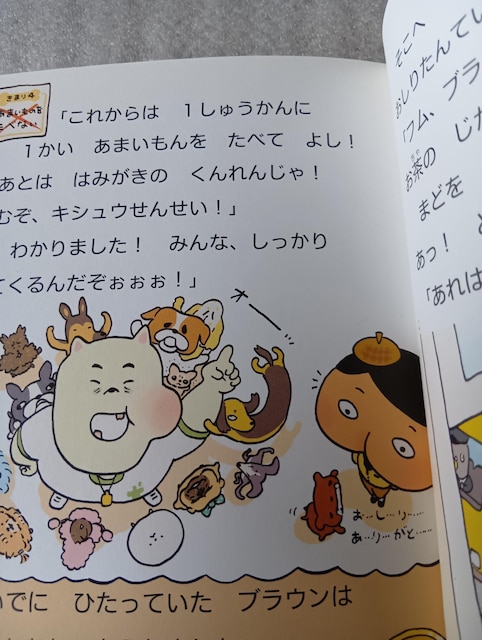 きまり4
「これからは　1しゅうかんに
1かい　あまいもんを　たべて　よし！
あとは　はみがきの　くんれんじゃ！
むぞ、キシュウせんせい！」
わかりました！　みんな、しっかり
てくるんだぞぉぉぉ！」
オー
お…し…り……
あ…り…がと……
いでに　ひたっていた　ブラウンは
そこへ
おしりたんてい
「フム、ブラ
お茶の　じた
ちゃ
まどを
あっ！　と
「あれは